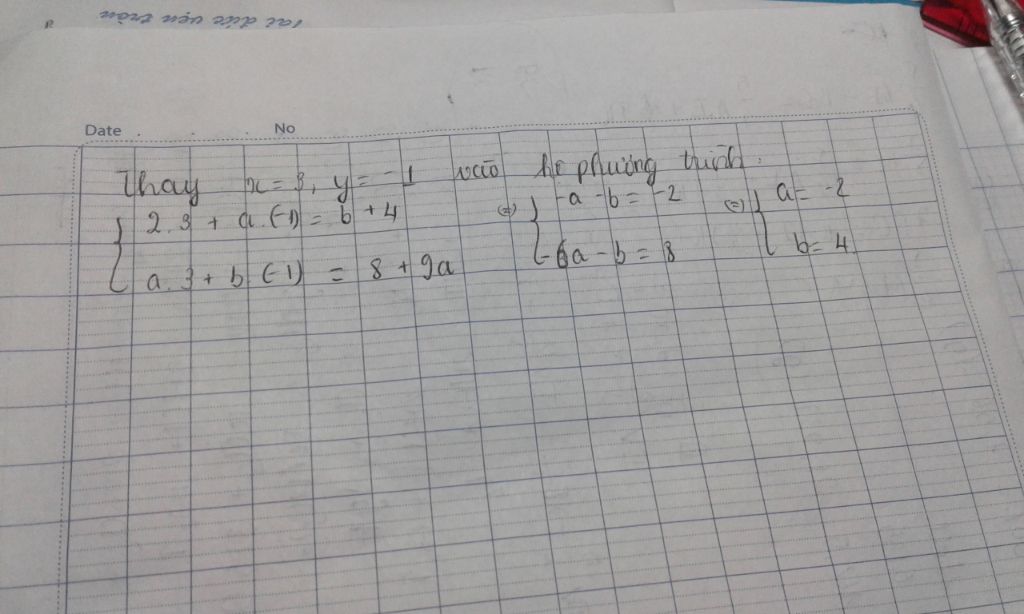 Date No
Thay x = 3, y = -1 vào hệ phương trình.
{ 2.3 + a.(-1) = b + 4 (=) { -a - b = -2 (=) { a = -2
{ a.3 + b.(-1) = 8 + 9a { -6a - b = 8 { b = 4